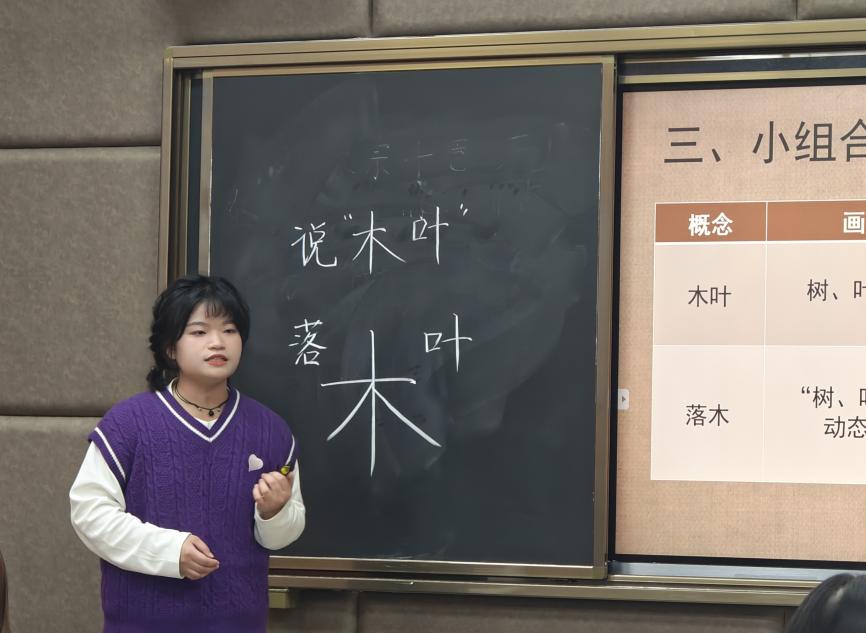 说“木叶”
落 木 叶
三、小组合
概念 画
木叶 树、叶
落木 “树、叶
动态